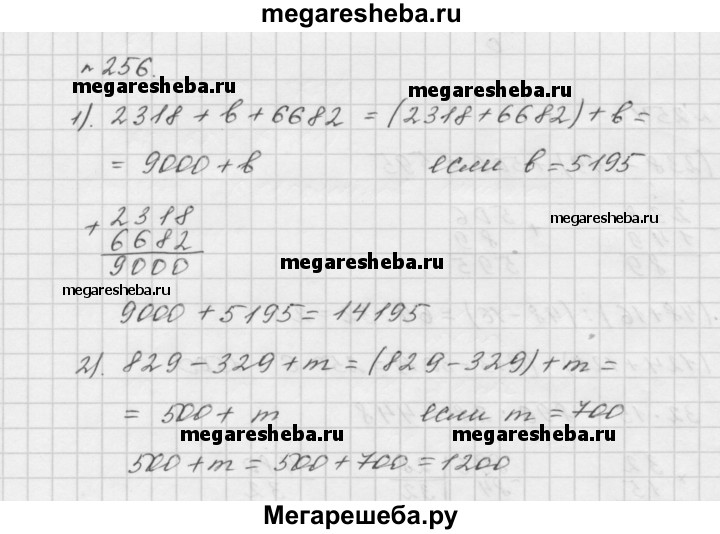 megaresheba.ru
№256.
megaresheba.ru
megaresheba.ru
1). 2318 + в + 6682 = (2318+6682)+в=
= 9000+в если в=5195
+ 2318
6682
9000
megaresheba.ru
megaresheba.ru
megaresheba.ru
9000+5195=14195
2). 829-329+m=(829-329)+m=
= 500+ m если m=700
megaresheba.ru
megaresheba.ru
500+m=500+700=1200
Мегарешеба.ру